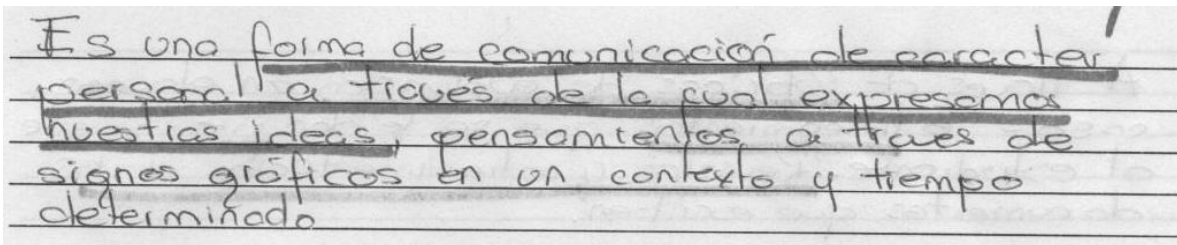 Es una forma de comunicación de caracter
personal a través de la cual expresamos
nuestras ideas, pensamientos, a traves de
signos gráficos en un contexto y tiempo
determinado